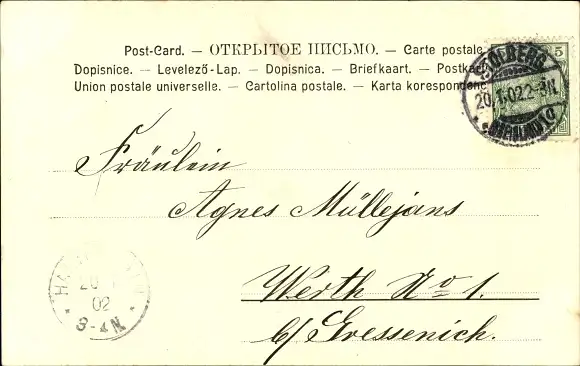 Post-Card. — ОТКРЫТОЕ ПИСЬМО. — Carte postale
Dopisnice. — Levelező-Lap. — Dopisnica. — Briefkaart. — Postkar
Union postale universelle. — Cartolina postale. — Karta korespondenc
5
STOLBERG
20.1.02.2-3N.
Fräulein
Agnes Müllejans
Werth No 1.
b/ Gressenich.
02
3-4N.